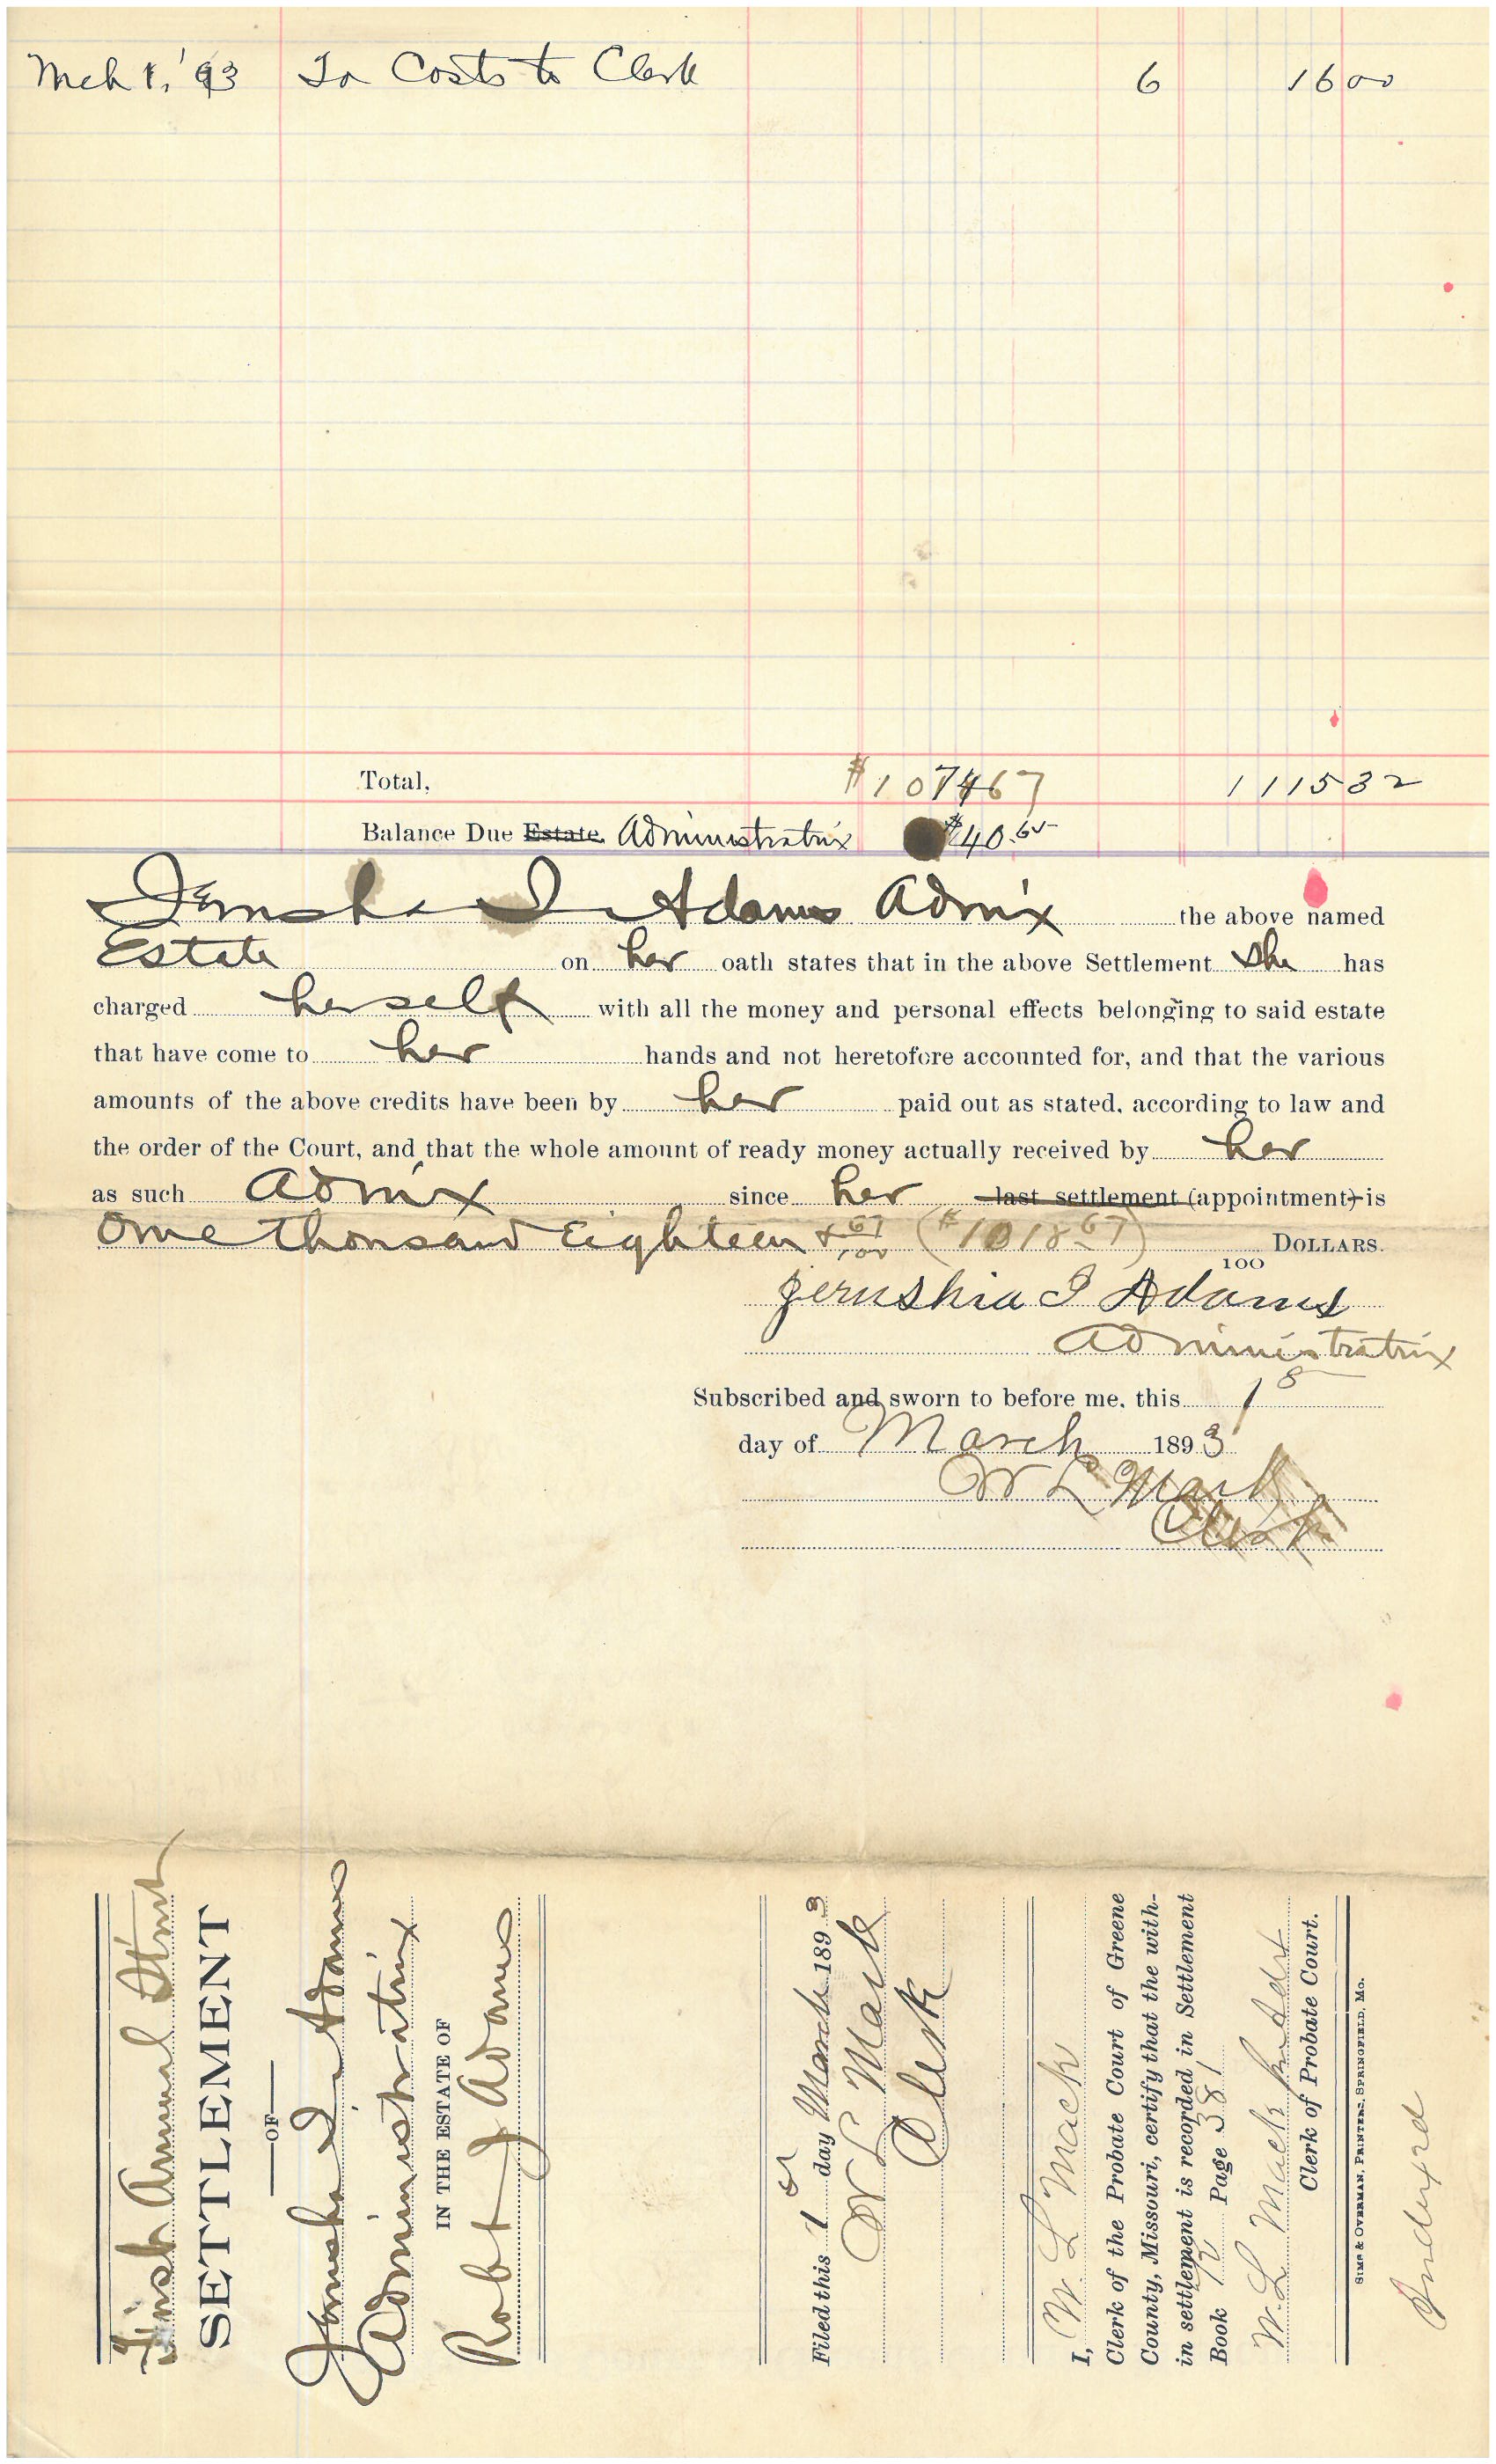 Mch 1, '93 To Costs to Clerk 6 16 00
Total, $1074 67 1115 32
Balance Due Estate. Administratrix $40.65
Jerusha I Adams Admx the above named
Estate on her oath states that in the above Settlement she has
charged herself with all the money and personal effects belonging to said estate
that have come to her hands and not heretofore accounted for, and that the various
amounts of the above credits have been by her paid out as stated, according to law and
the order of the Court, and that the whole amount of ready money actually received by her
as such Admx since her last settlement (appointment) is
One thousand Eighteen & 67/100 ($1018 67) 100 DOLLARS.
Jerushia I Adams
Administratrix
Subscribed and sworn to before me, this 1s
day of March 1893
W L Mack
Clerk
First Annual Stmt
SETTLEMENT
OF
Jerusha I Adams
Administratrix
IN THE ESTATE OF
Robt J Adams
Filed this 1st day March 1893
W L Mack
Clerk
I, W. L. Mack
Clerk of the Probate Court of Greene
County, Missouri, certify that the with-
in settlement is recorded in Settlement
Book Page 381
W. L. Mack
Clerk of Probate Court.
SIMS & OVERMAN, PRINTERS, SPRINGFIELD, MO.
Indexed